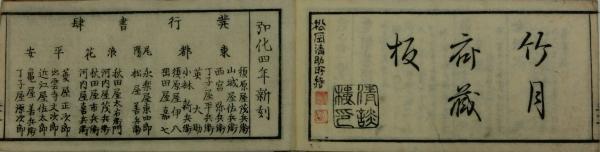 竹月
齋藏
板
弘化四年新刻
發行書肆
東都
須原屋茂兵衛
山城屋佐兵衛
西宮弥兵衛
丁子屋平兵衛
英大助
小林新兵衛
須原屋伊八
岡田屋嘉七
尾
永樂屋東四郎
鷹
松屋善兵衛
浪花
秋田屋太右衛門
河内屋茂兵衛
秋田屋市兵衛
河内屋喜兵衛
平安
菱屋正次郎
出雲寺文次郎
近江屋佐太郎
亀屋善兵衛
丁子屋源次郎